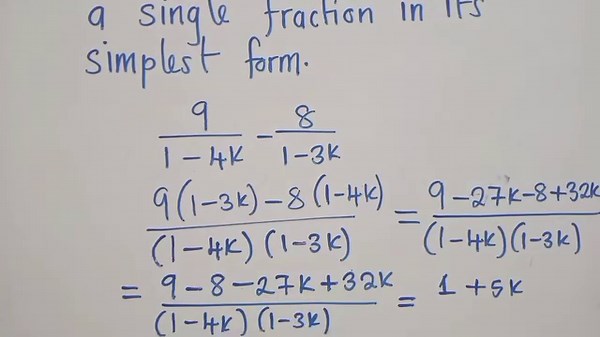 a single fraction in its
simplest form.
9/(1-4k) - 8/(1-3k)
(9(1-3k)-8(1-4k))/((1-4k)(1-3k)) = (9-27k-8+32k)/((1-4k)(1-3k))
= (9-8-27k+32k)/((1-4k)(1-3k)) = 1+5k